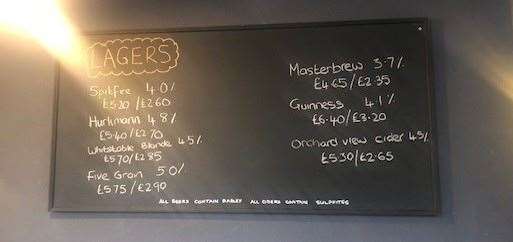 LAGERS
Spitfire 4.0%
£5.20/£2.60
Hurlimann 4.8%
£5.40/£2.70
Whitstable Blonde 4.5%
£5.70/£2.85
Five Grain 5.0%
£5.75/£2.90
Masterbrew 3.7%
£4.65/£2.35
Guinness 4.1%
£6.40/£3.20
Orchard View Cider 4.5%
£5.30/£2.65
ALL BEERS CONTAIN BARLEY ALL CIDERS CONTAIN SULPHITES